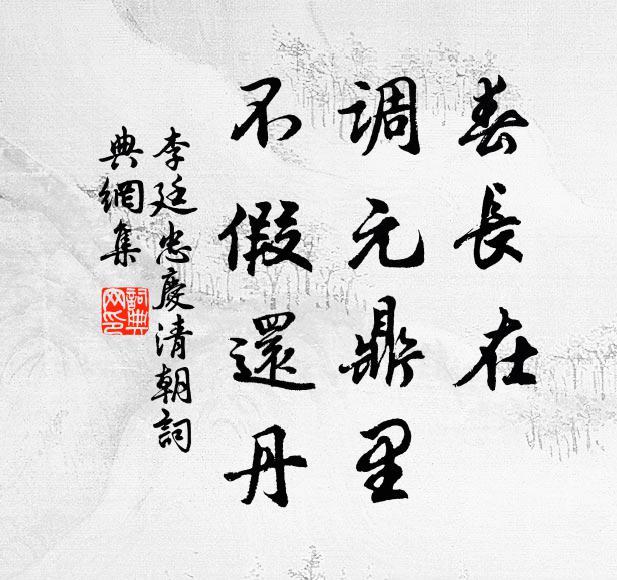 春長在
调元鼎里
不假還丹
李廷忠慶清朝詞
典網集
詞典网印